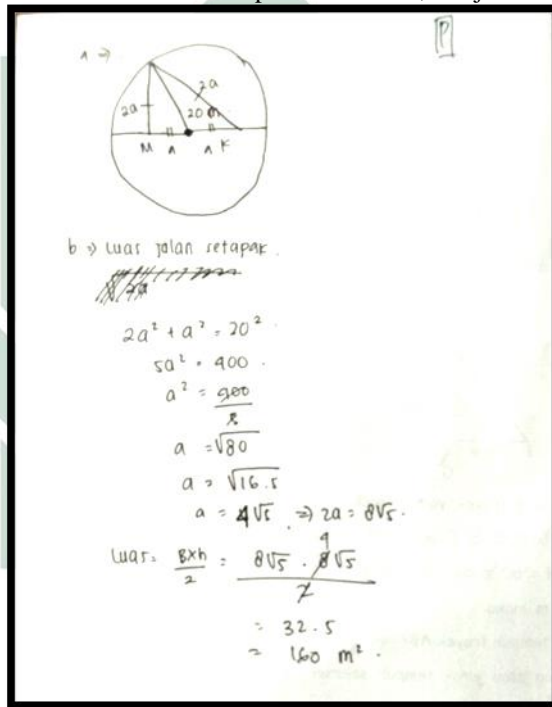 P
a ⇒
2a
2a
20 m
M a a K
b ⇒ Luas jalan setapak.
2a² + a² = 20²
5a² = 400.
a² = 400
5
a = √80
a = √16.5
a = 4√5 ⇒ 2a = 8√5.
Luas = Bxh / 2 = 8√5 . 8√5 / 2
4
= 32.5
= 160 m².